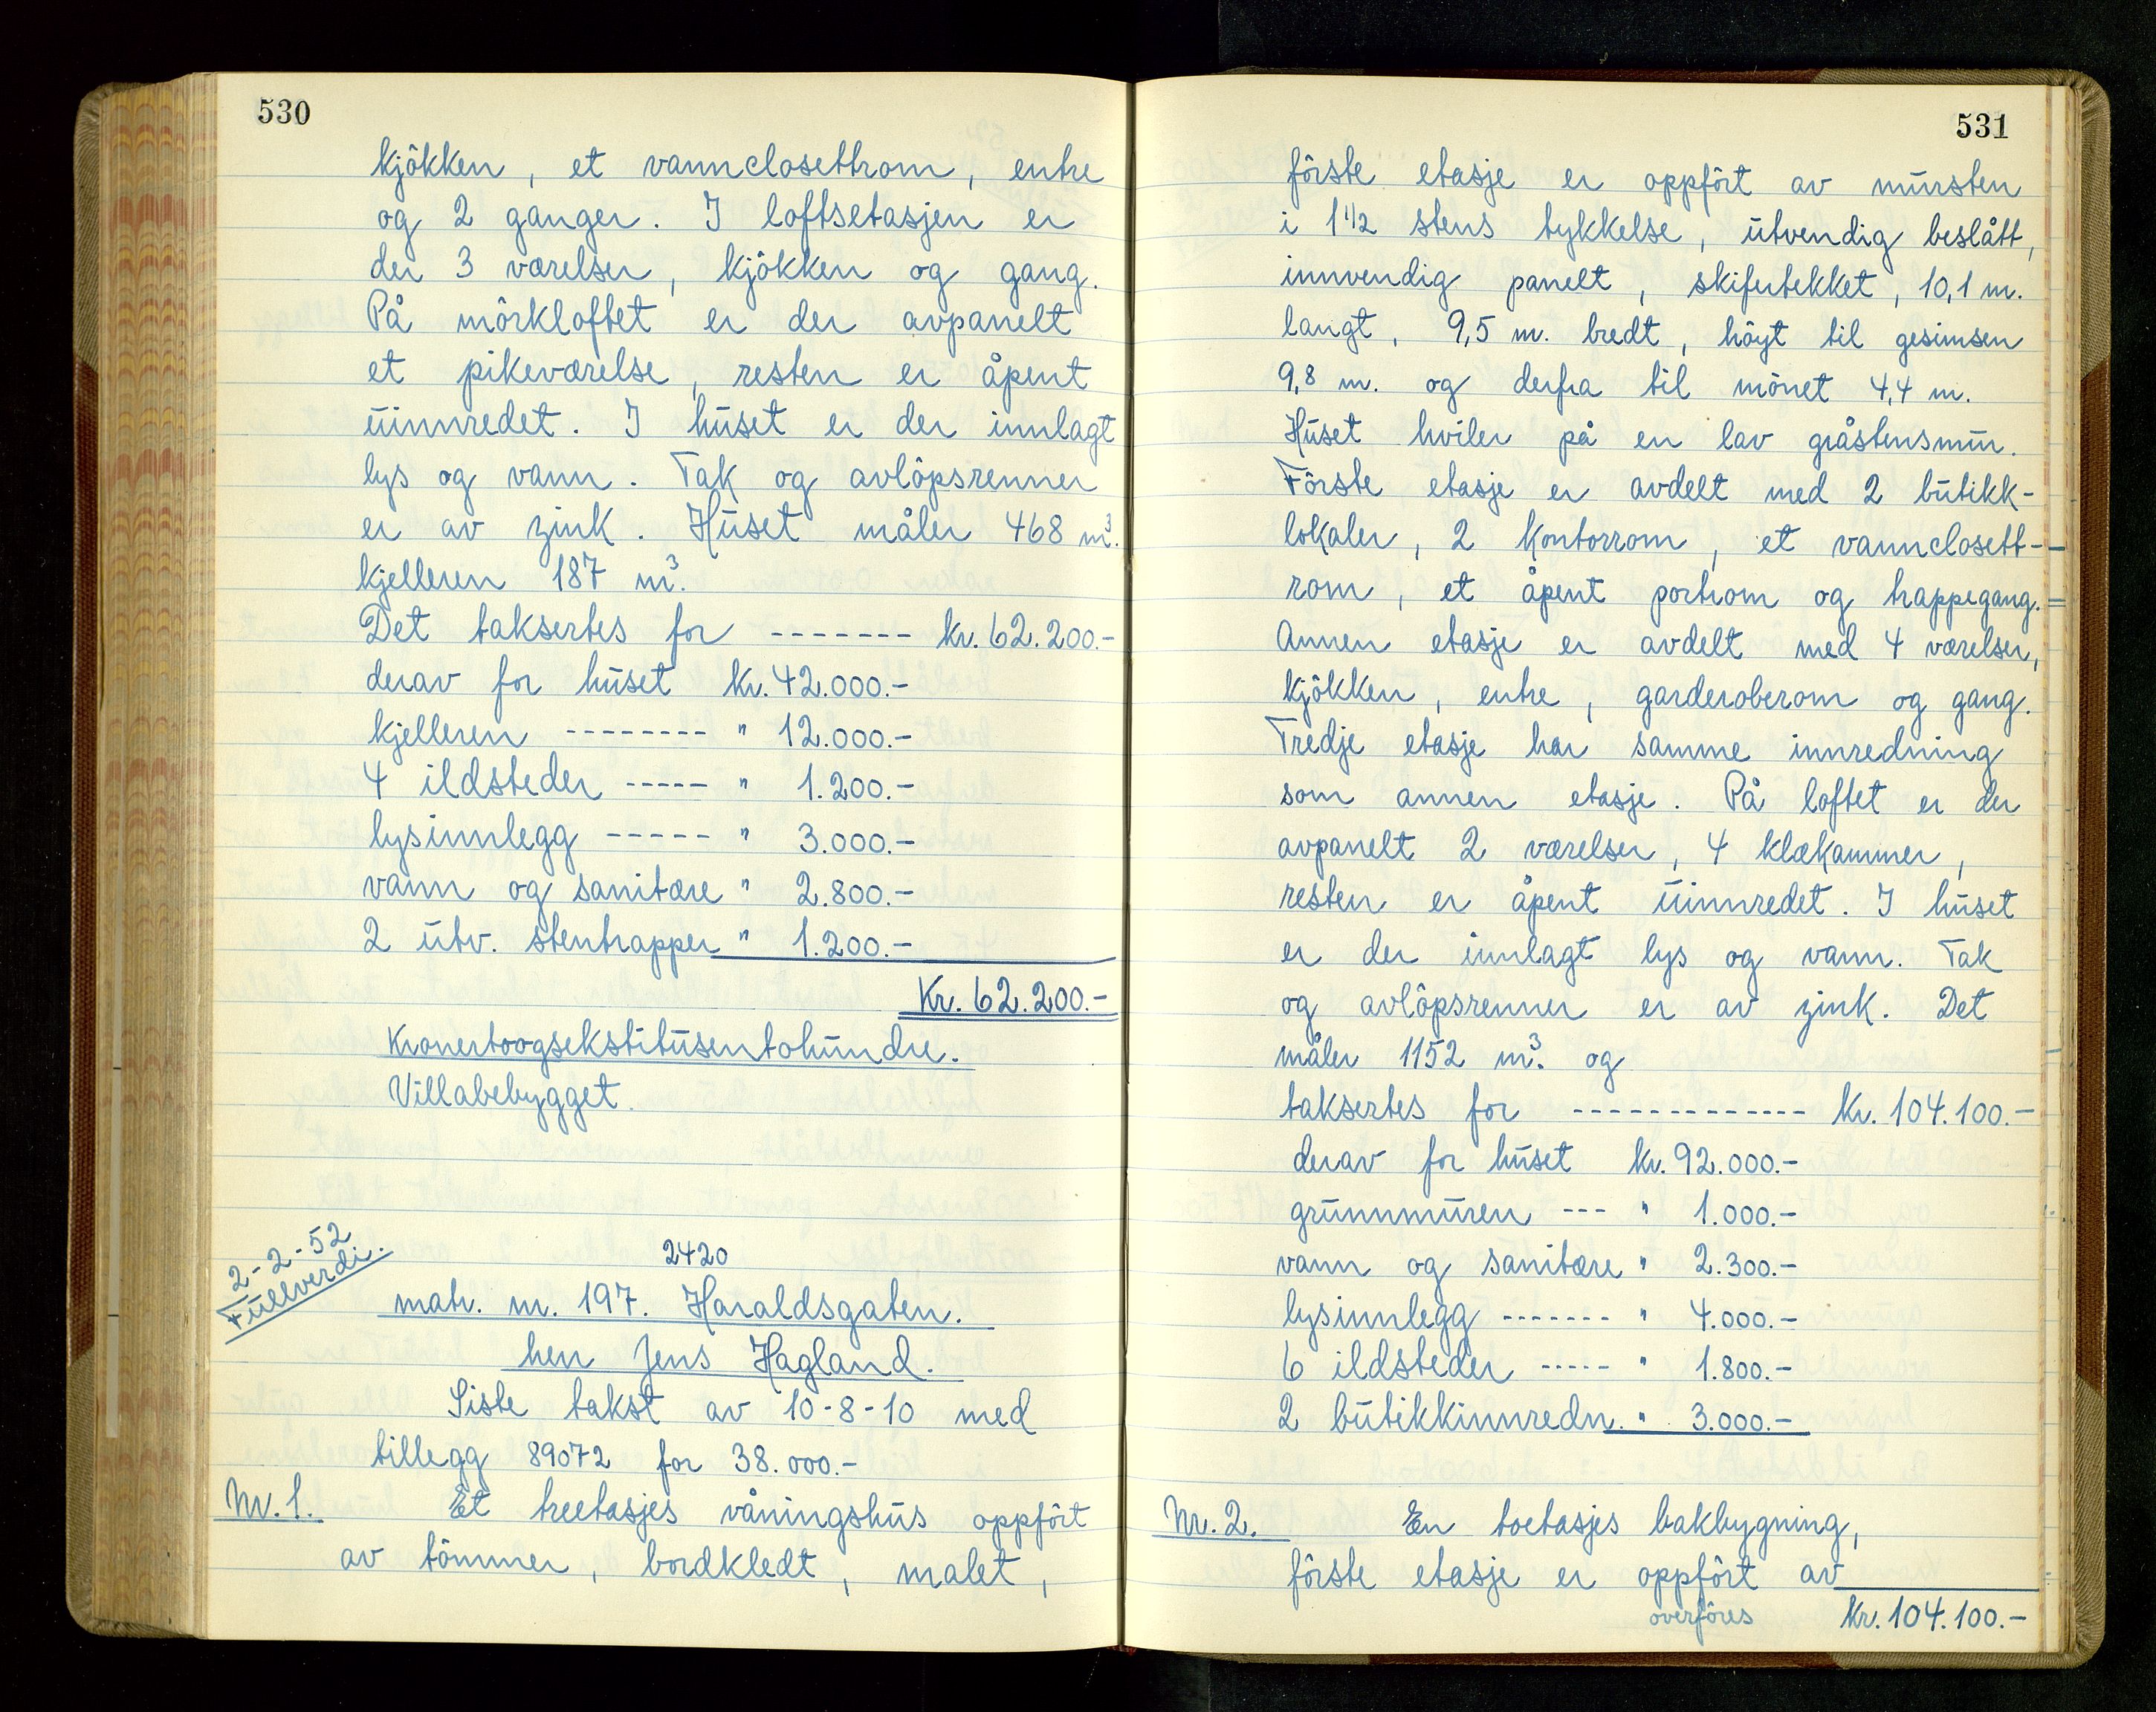 530
kjökken, et vannclosettrom, entre
og 2 ganger. I loftsetasjen er
der 3 værelser, kjökken og gang.
På mörkloftet er der avpanelt
et pikeværelse, resten er åpent
uinnredet. I huset er der innlagt
lys og vann. Tak og avlöpsrenner
er av zink. Huset måler 468 m³.
kjelleren 187 m³.
Det taksertes for ------- kr. 62.200.-
derav for huset kr. 42.000.-
kjelleren -------- " 12.000.-
4 ildsteder ----- " 1.200.-
lysinnlegg ----- " 3.000.-
vann og sanitære " 2.800.-
2 utv. stentrapper " 1.200.-
Kr. 62.200.-
Kronertoogsekstitusentohundre.
Villabebygget.
2-2-52
Fullverdi.
2420
matr. nr. 197. Haraldsgaten.
herr Jens Hagland.
Siste takst av 10-8-10 med
tillegg 89072 for 38.000.-
Nr. 1. Et treetasjes våningshus oppfört
av tömmer, bordkledt, malet,
531
förste etasje er oppfört av mursten
i 1 1/2 stens tykkelse, utvendig beslått,
innvendig panelt, skifertekket, 10,1 m.
langt, 9,5 m. bredt, höyt til gesimsen
9,8 m. og derfra til mönet 4,4 m.
Huset hviler på en lav gråstensmur.
Förste etasje er avdelt med 2 butikk-
lokaler, 2 kontorrom, et vannclosett-
rom, et åpent portrom og trappegang.
Annen etasje er avdelt med 4 værelser,
kjökken, entre, garderoberom og gang.
Tredje etasje har samme innredning
som annen etasje. På loftet er der
avpanelt 2 værelser, 4 klækammer,
resten er åpent uinnredet. I huset
er der innlagt lys og vann. Tak
og avlöpsrenner er av zink. Det
måler 1152 m³. og
taksertes for ------------- kr. 104.100.-
derav for huset kr. 92.000.-
grunnmuren --- " 1.000.-
vann og sanitære " 2.300.-
lysinnlegg ------- " 4.000.-
6 ildsteder ----- " 1.800.-
2 butikkinnredn. " 3.000.-
Nr. 2. En toetasjes bakbygning,
förste etasje er oppfört av
overföres Kr. 104.100.-